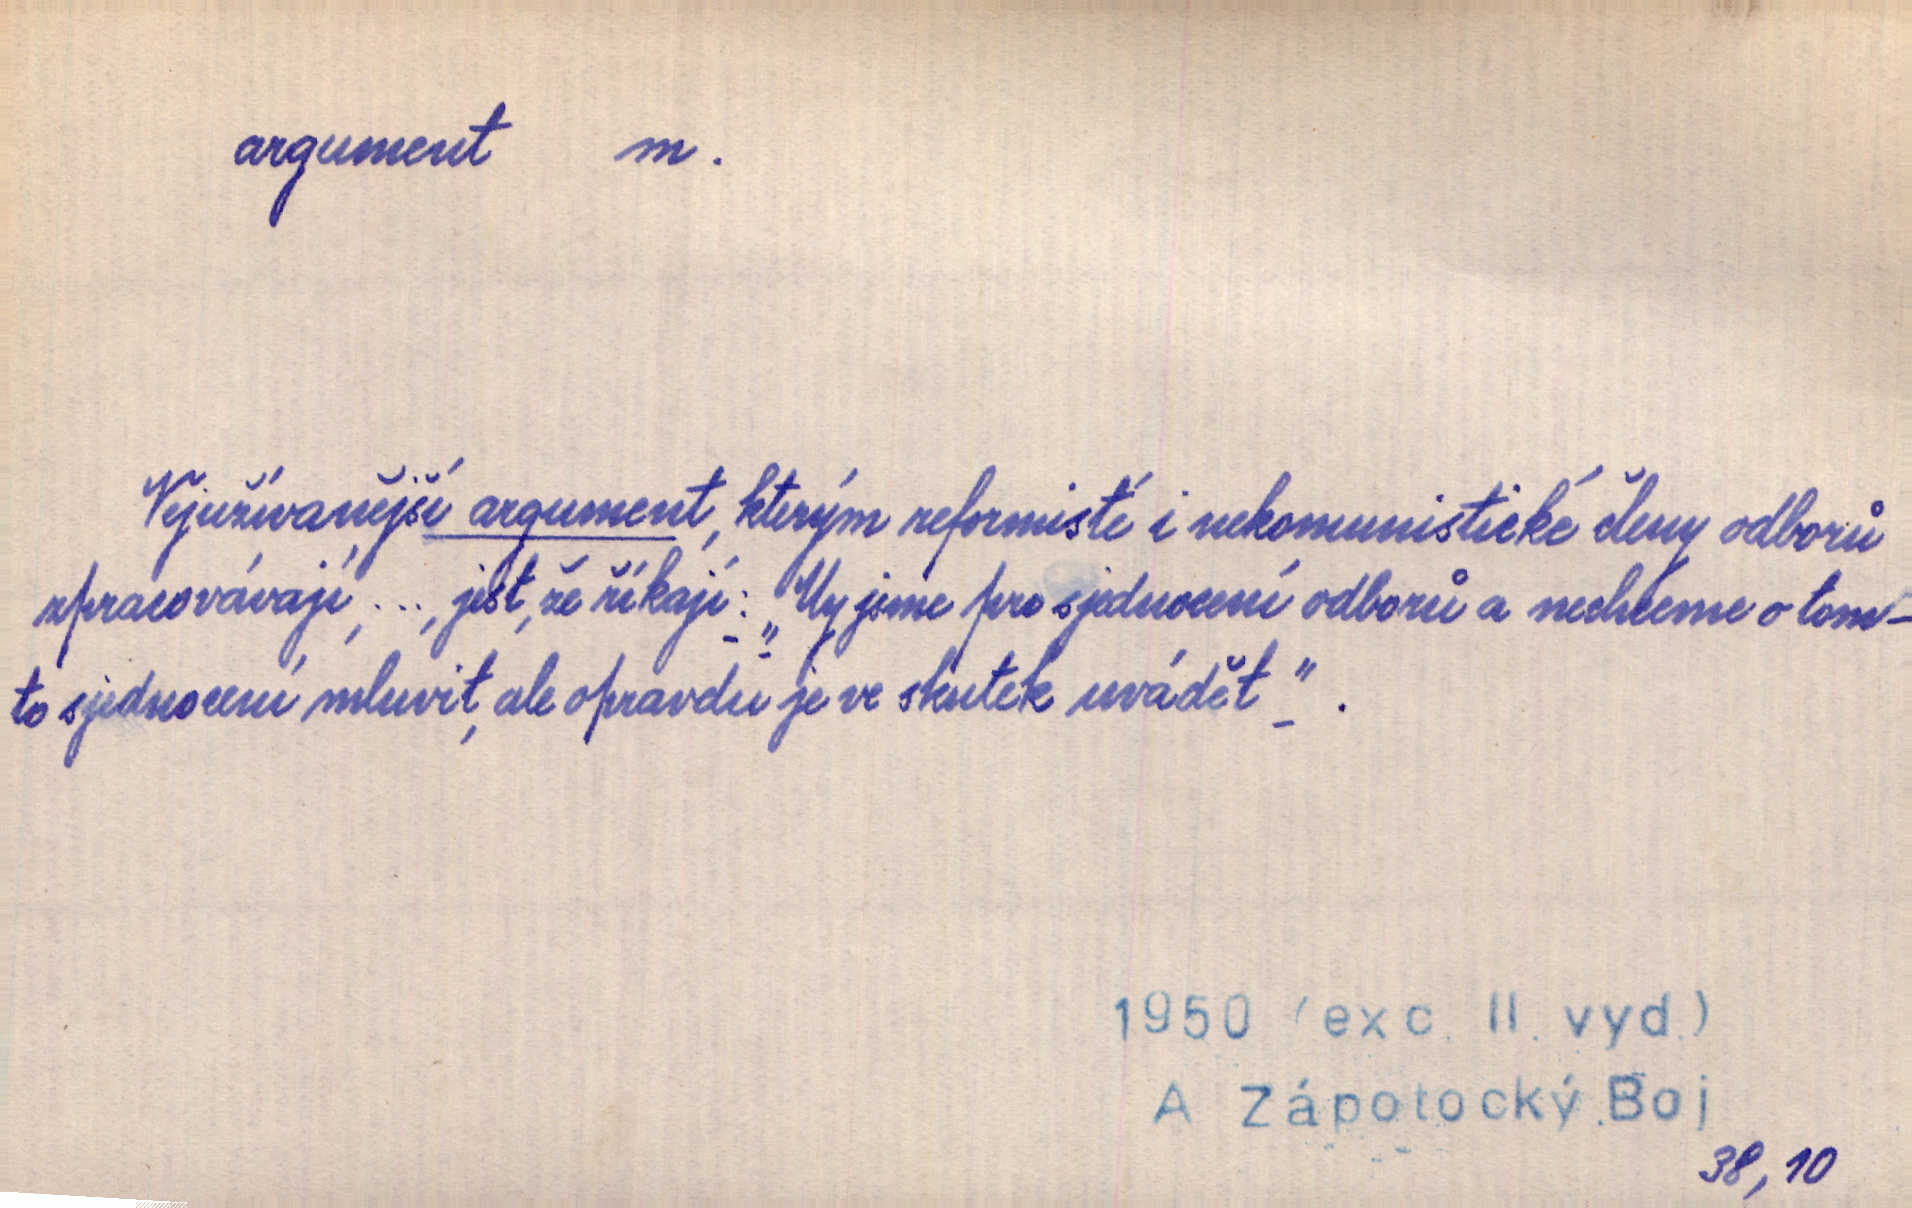 argument m.
Nejužívanější argument, kterým reformisté i nekomunistické členy odborů
zpracovávají, ..., jest, že říkají: „My jsme pro sjednocení odborů a nechceme o tom-
to sjednocení mluvit, ale opravdu je ve skutek uvádět".
1950 (exc. II. vyd.)
A Zápotocký Boj
38, 10